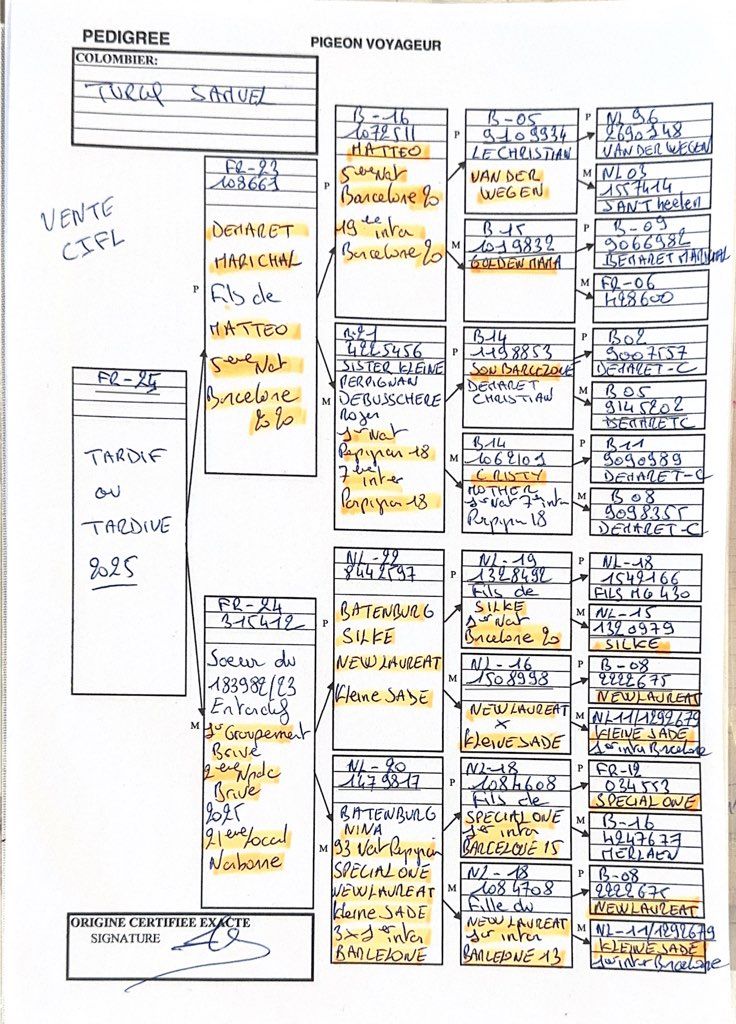 PEDIGREE
PIGEON VOYAGEUR
COLOMBIER:
TURCQ SAMUEL
VENTE
CIFL
FR-25
TARDIF
ou
TARDIVE
2025
P
FR-23
108661
DEMARET
MARICHAL
Fils de
MATTEO
5eme Nat
Barcelone
2020
M
FR-24
315412
Soeur du
183982/23
Entardif
1er Groupement
Brive
2eme Npdc
Brive
2025
21eme local
Narbonne
P
B-16
1072511
MATTEO
5eme Nat
Barcelone 20
19eme inter
Barcelone 20
M
B-21
4225456
SISTER KLEINE
PERPIGNAN
DEBUSSCHERE
Roger
1er Nat
Perpignan 18
7eme inter
Perpignan 18
P
NL-22
8442597
BATENBURG
SILKE
NEW LAUREAT
Kleine JADE
M
NL-20
1479817
BATENBURG
NINA
93 Nat Perpignan
SPECIAL ONE
NEW LAUREAT
Kleine JADE
3x 1er inter
BARCELONE
P
B-05
9109934
LE CHRISTIAN
VAN DER
WEGEN
M
B-15
1019832
GOLDEN MAMA
P
B14
1198853
SON BARCELONE
DEMARET
CHRISTIAN
M
B14
1062101
CRISTY
MOTHER
1er Nat 7e inter
Perpignan 18
P
NL-19
1328492
Fils de
SILKE
1er Nat
Barcelone 20
M
NL-16
1508998
NEW LAUREAT
x
Kleine JADE
P
NL-18
1084608
Fils de
SPECIAL ONE
1er inter
BARCELONE 15
M
NL-18
1084708
Fille du
NEW LAUREAT
1er inter
BARCELONE 13
P
NL 96
2690148
VAN DER WEGEN
M
NL 03
1557414
JAN Theelen
P
B-09
9066982
DEMARET MARICHAL
M
FR-06
428600
P
B02
9007557
DEMARET-C
M
B05
9145202
DEMARET C
P
B11
9090989
DEMARET-C
M
B08
9098355
DEMARET-C
P
NL-18
1542166
FILS MG 430
M
NL-15
1320979
SILKE
P
B-08
2222675
NEW LAUREAT
M
NL11/1292679
KLEINE JADE
1er inter Barcelone
P
FR-12
034553
SPECIAL ONE
M
B-16
4247677
MERLAEN
P
B-08
2222675
NEW LAUREAT
M
NL-11/1292679
KLEINE JADE
1er inter Barcelone
ORIGINE CERTIFIEE EXACTE
SIGNATURE